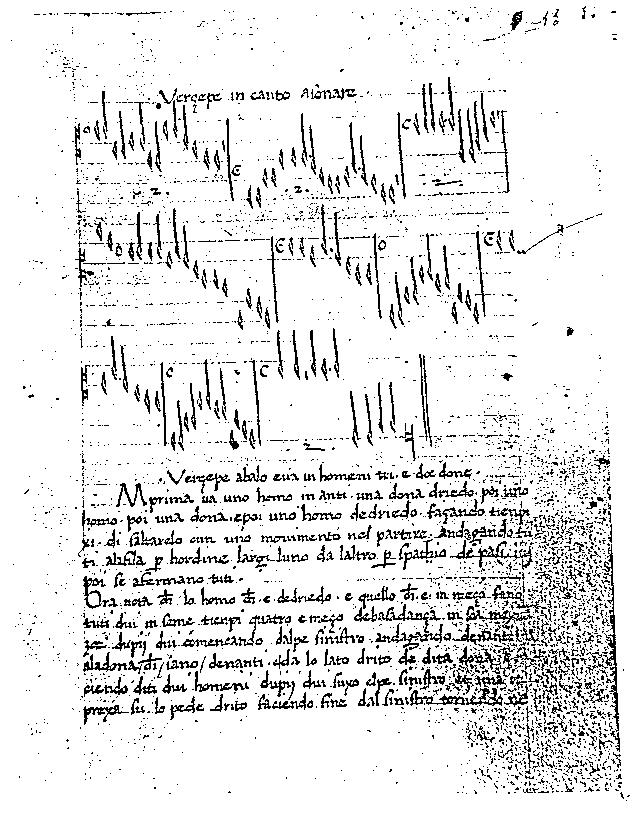 Verçepe in canto Aionare
.2. .2.
2
Verçepe abalo eva in homeni tri . e doe done .
M prima va uno homo in anti . una dona driedo . poi uno
homo . poi una dona . epoi uno homo dedriedo . façando tienpi
xi . di saltardo cun uno movimento nel partire . andagando tu
ti alafila p hordine largi luno da laltro p spathio de pasi iij
poi se afermano tuti .
Ora nota ch lo homo ch . e . dedriedo . e quello ch . e . in meço fano
tuti dui in seme tienpi quatro e meço debasadança in soi
dupii dui comencando dalpe sinistro . andagando denanti
aladona / ch / iano / denanti . da lo lato drito de dita dona
ciendo diti dui homeni dupii dui suxo elpe sinistro et una
prexa su lo pede drito faciendo fine dal sinistro tornendo